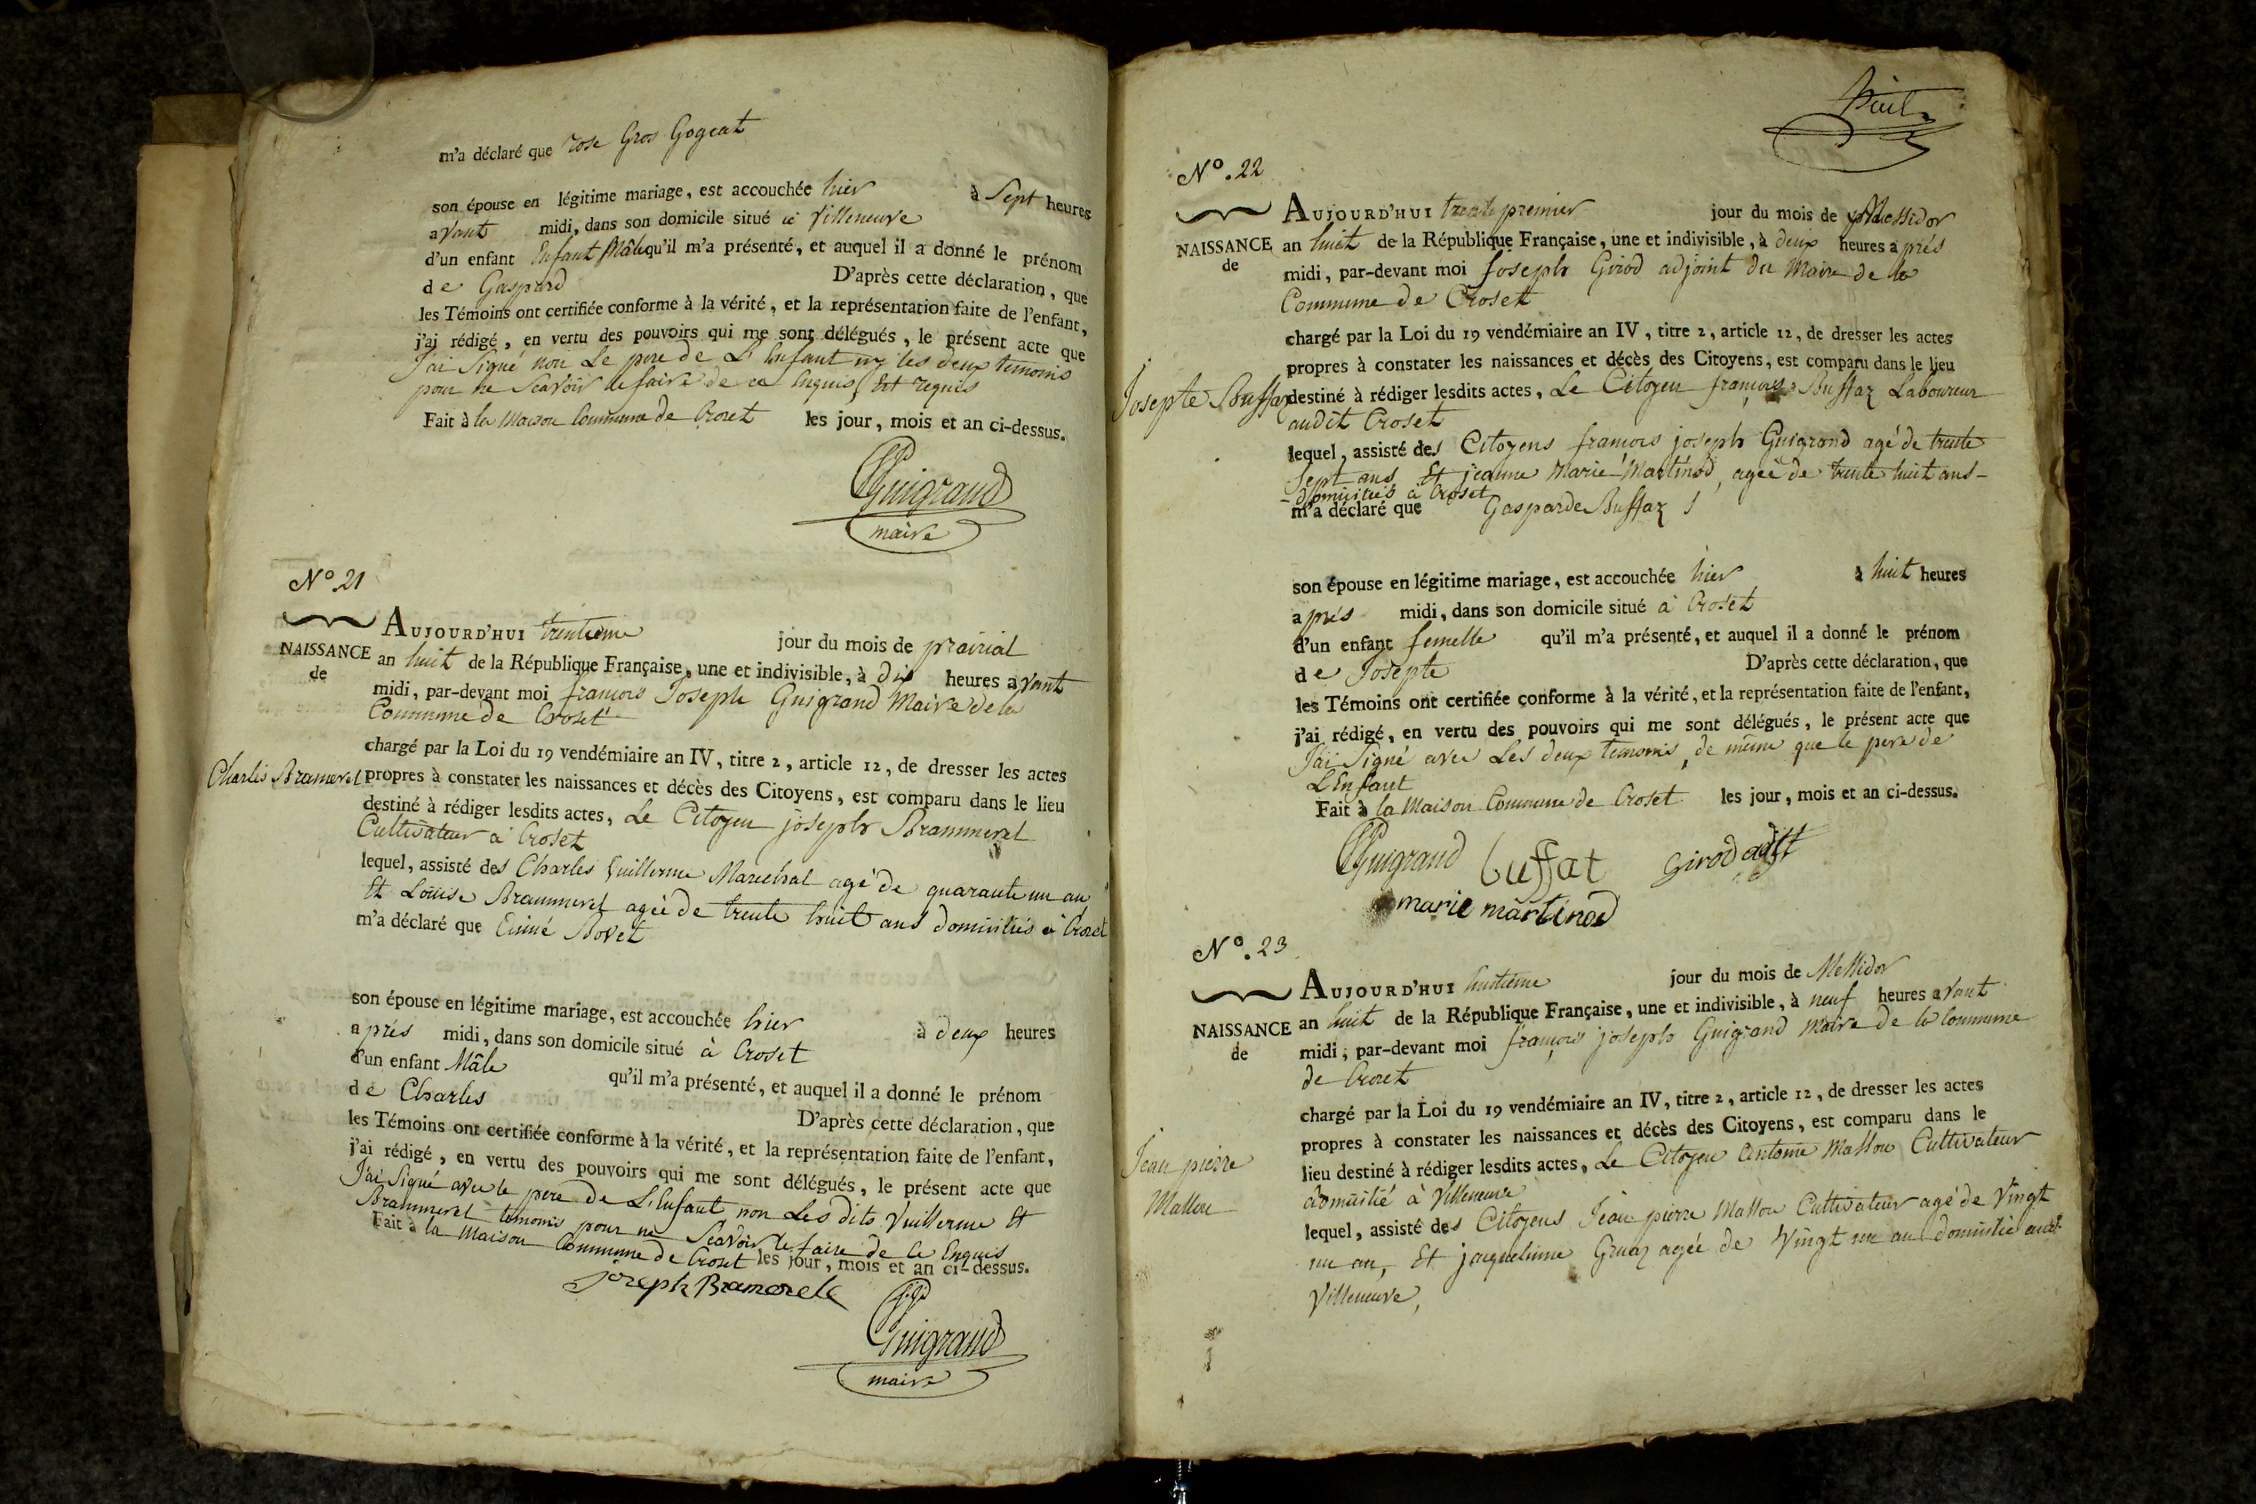 m'a déclaré que rose Gros Gogeat
son épouse en légitime mariage, est accouchée hier à Sept heures
avant midi, dans son domicile situé à Villeneuve
d'un enfant Enfant Mâle qu'il m'a présenté, et auquel il a donné le prénom
de Gaspard D'après cette déclaration, que
les Témoins ont certifiée conforme à la vérité, et la représentation faite de l'enfant,
j'ai rédigé, en vertu des pouvoirs qui me sont délégués, le présent acte que
J'ai Signé non Le pere de L'Enfant ny les deux temoins
pour ne Scavoir le faire de ce Enquis Et requis
Fait à la Maison Commune de Crozet les jour, mois et an ci-dessus.
Guigrand
maire
N° 21
NAISSANCE
de
Charles Brameret
AUJOURD'HUI trentieme jour du mois de prairial
an huit de la République Française, une et indivisible, à dix heures avant
midi, par-devant moi françois Joseph Guigrand Maire de la
Commune de Croset
chargé par la Loi du 19 vendémiaire an IV, titre 2, article 12, de dresser les actes
propres à constater les naissances et décès des Citoyens, est comparu dans le lieu
destiné à rédiger lesdits actes, Le Citoyen joseph Brammeret
Cultivateur à Croset
lequel, assisté des Charles Vuillerme Marechal agé de quarante un an
Et Louise Brammeret agée de trente huit ans domiciliés à Crozet
m'a déclaré que Bovet
son épouse en légitime mariage, est accouchée hier à deux heures
après midi, dans son domicile situé à Croset
d'un enfant Mâle qu'il m'a présenté, et auquel il a donné le prénom
de Charles D'après cette déclaration, que
les Témoins ont certifiée conforme à la vérité, et la représentation faite de l'enfant,
j'ai rédigé, en vertu des pouvoirs qui me sont délégués, le présent acte que
J'ai Signé avec le pere de L'Enfant non Les dits Vuillerme Et
Brammeret temoins pour ne Scavoir le faire de Ce Enquis
Fait à la Maison Commune de Crozet les jour, mois et an ci-dessus.
joseph Bramerele
Guigrand
maire
N°. 22
NAISSANCE
de
Josepte Buffaz
AUJOURD'HUI trente premier jour du mois de Messidor
an huit de la République Française, une et indivisible, à deux heures après
midi, par-devant moi Joseph Girod adjoint du Maire de la
Commune de Croset
chargé par la Loi du 19 vendémiaire an IV, titre 2, article 12, de dresser les actes
propres à constater les naissances et décès des Citoyens, est comparu dans le lieu
destiné à rédiger lesdits actes, Le Citoyen françois Buffaz Laboureur
audit Croset
lequel, assisté des Citoyens françois joseph Guigrand agé de trente
Sept ans Et jeanne Marie Martinod, agée de trente huit ans
domiciliés à Croset
m'a déclaré que Gasparde Buffaz
son épouse en légitime mariage, est accouchée hier à huit heures
après midi, dans son domicile situé à Croset
d'un enfant femelle qu'il m'a présenté, et auquel il a donné le prénom
de Josepte D'après cette déclaration, que
les Témoins ont certifiée conforme à la vérité, et la représentation faite de l'enfant,
j'ai rédigé, en vertu des pouvoirs qui me sont délégués, le présent acte que
J'ai Signé avec Les deux temoins, de même que le pere de
L'Enfant
Fait à la Maison Commune de Croset les jour, mois et an ci-dessus.
Guigrand buffat Girod adjt
marie martinod
N°. 23
NAISSANCE
de
Jean pierre
Mathou
AUJOURD'HUI huitieme jour du mois de Messidor
an huit de la République Française, une et indivisible, à neuf heures avant
midi, par-devant moi françois joseph Guigrand Maire de la Commune
de Crozet
chargé par la Loi du 19 vendémiaire an IV, titre 2, article 12, de dresser les actes
propres à constater les naissances et décès des Citoyens, est comparu dans le
lieu destiné à rédiger lesdits actes, Le Citoyen Antoine Mathou Cultivateur
domicilié à Villeneuve
lequel, assisté des Citoyens Jean pierre Mathou Cultivateur agé de Vingt
un an, Et jacqueline Gruaz agée de Vingt un an domicilié audt
Villeneuve,